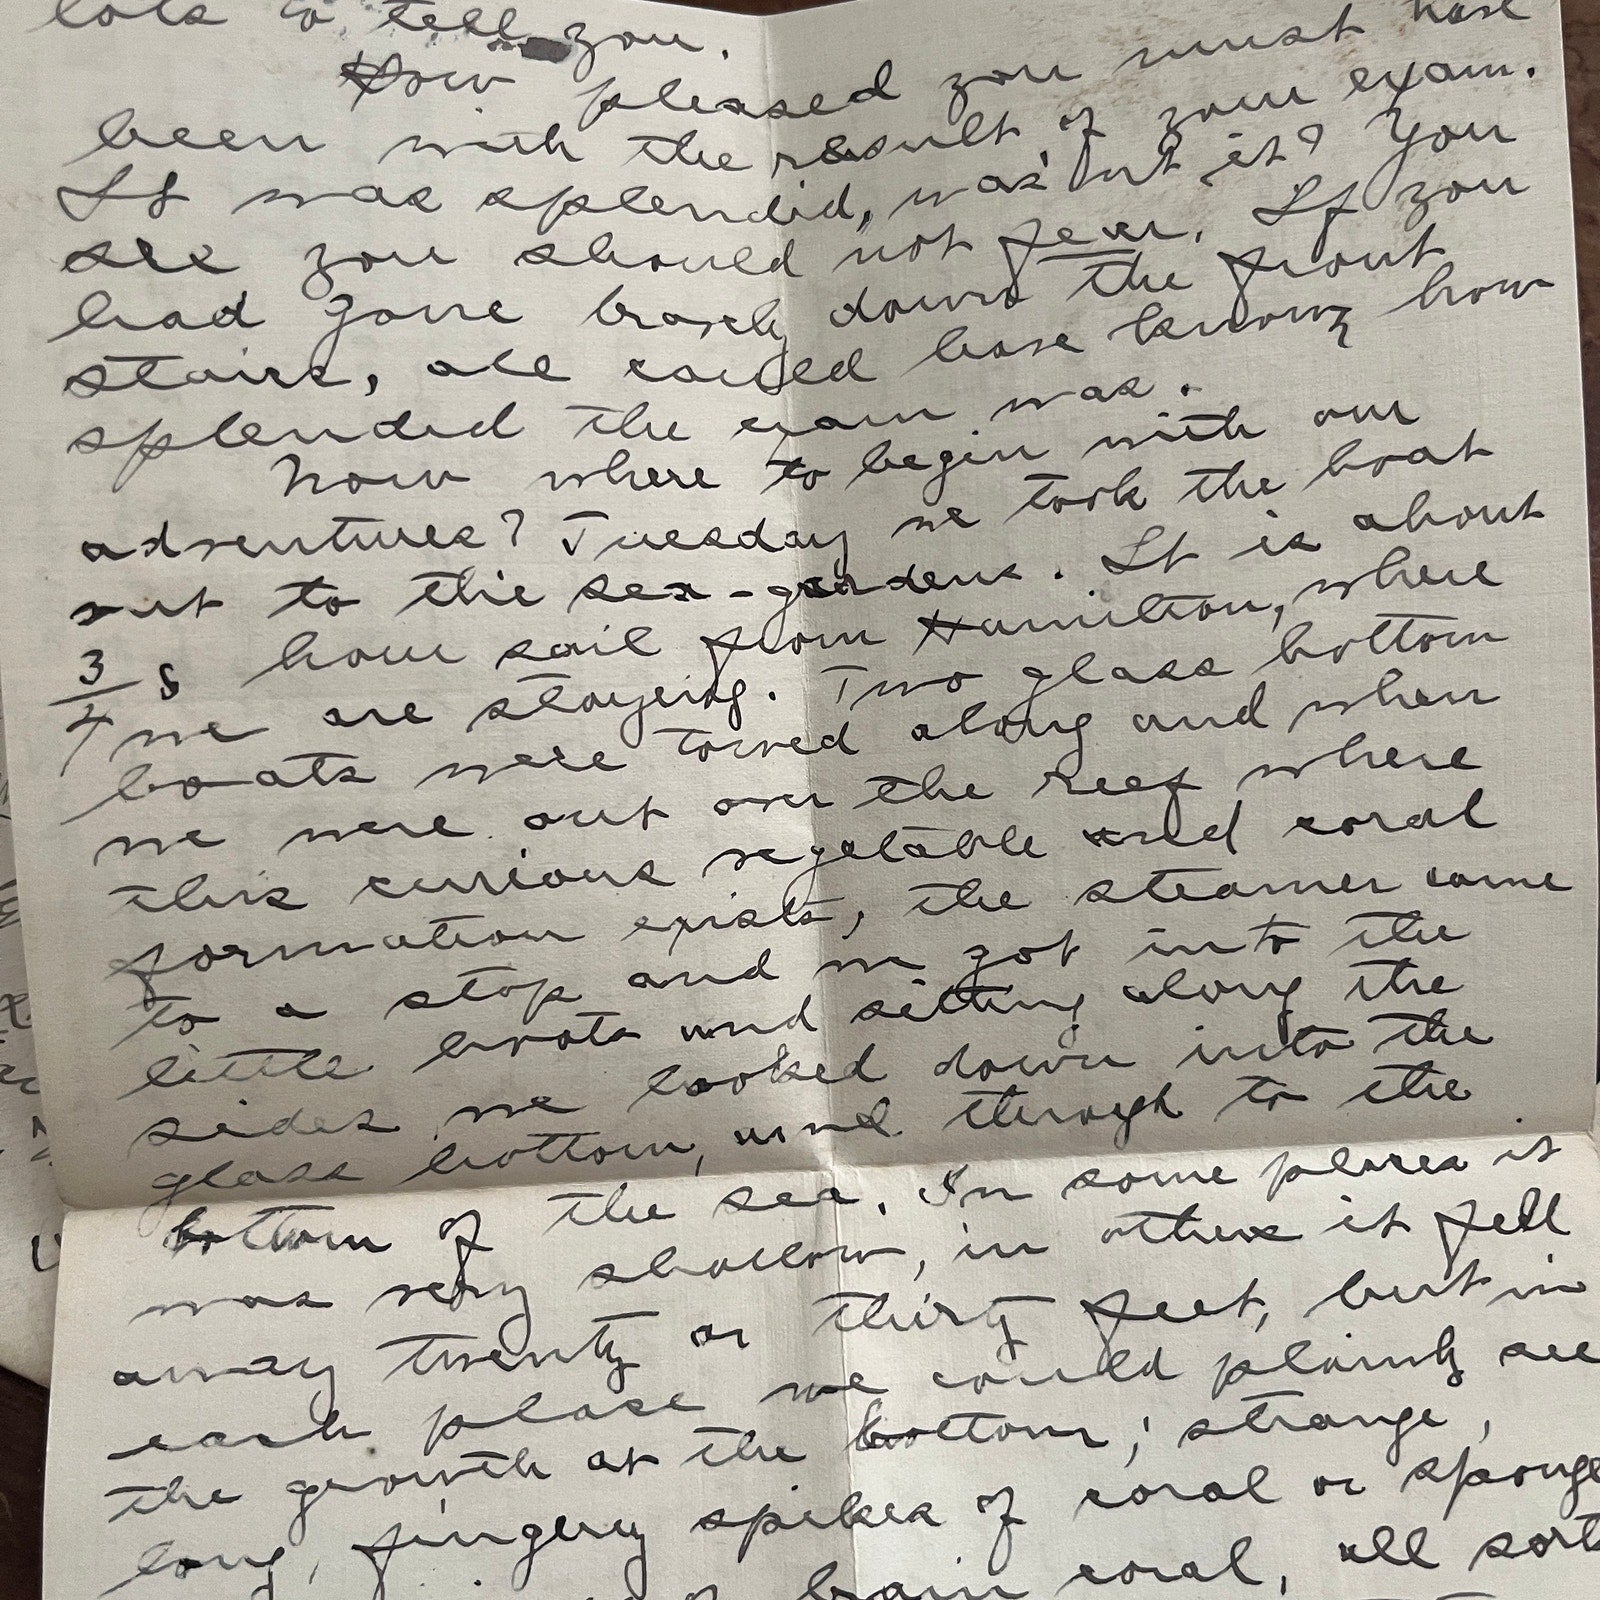 lots to tell you.
How pleased you must have
been with the result of your exam.
It was splendid, was'nt it? You
see you should not fear. If you
had gone bravely down the front
stairs, all could have known how
splendid the exam was.
Now where to begin with our
adventures? Tuesday we took the boat
out to the sea-gardens. It is about
3/4 s hour sail from Hamilton, where
we are staying. Two glass bottom
boats were towed along and when
we were out over the reef where
this curious vegetable and coral
formation exists, the steamer came
to a stop and we got into the
little boats and sitting along the
sides we looked down into the
glass bottom, and through to the
bottom of the sea. In some places it
was very shallow, in others it fell
away twenty or thirty feet, but in
each place we could plainly see
the growth at the bottom; strange,
long, fingery spikes of coral or sponge
of brain coral, all sorts